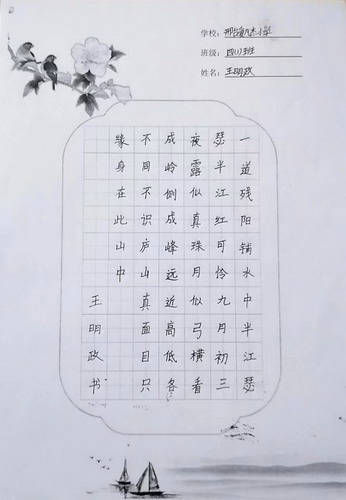 学校：小学
班级：四(1)班
姓名：王明政
一道残阳铺水中半江瑟
瑟半江红可怜九月初三
夜露似真珠月似弓横看
成岭侧成峰远近高低各
不同不识庐山真面目只
缘身在此山中
王明政书